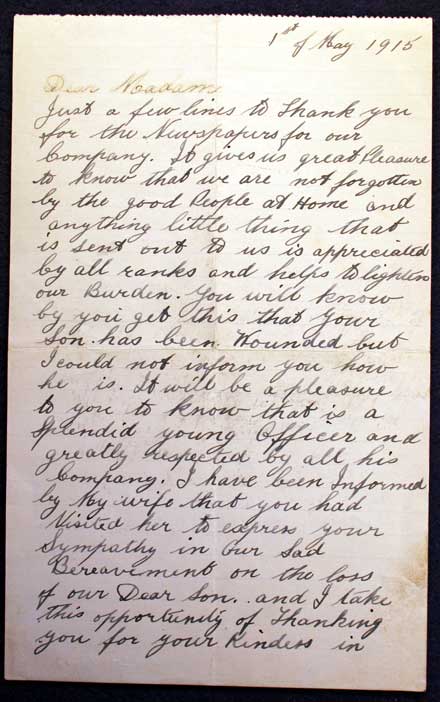 1st of May 1915
Dear Madam
Just a few lines to Thank you
for the Newspapers for our
Company. It gives us great Pleasure
to know that we are not forgotten
by the good People at Home and
anything little thing that
is sent out to us is appreciated
by all ranks and helps to lighten
our Burden. You will know
by you get this that Your
Son has been Wounded but
I could not inform you how
he is. It will be a pleasure
to you to know that is a
Splendid young Officer and
greatly respected by all his
Company. I have been Informed
by My wife that you had
Visited her to express your
Sympathy in Our Sad
Bereavement on the loss
of our Dear Son.. and I take
this opportunity of Thanking
you for your Kindess in